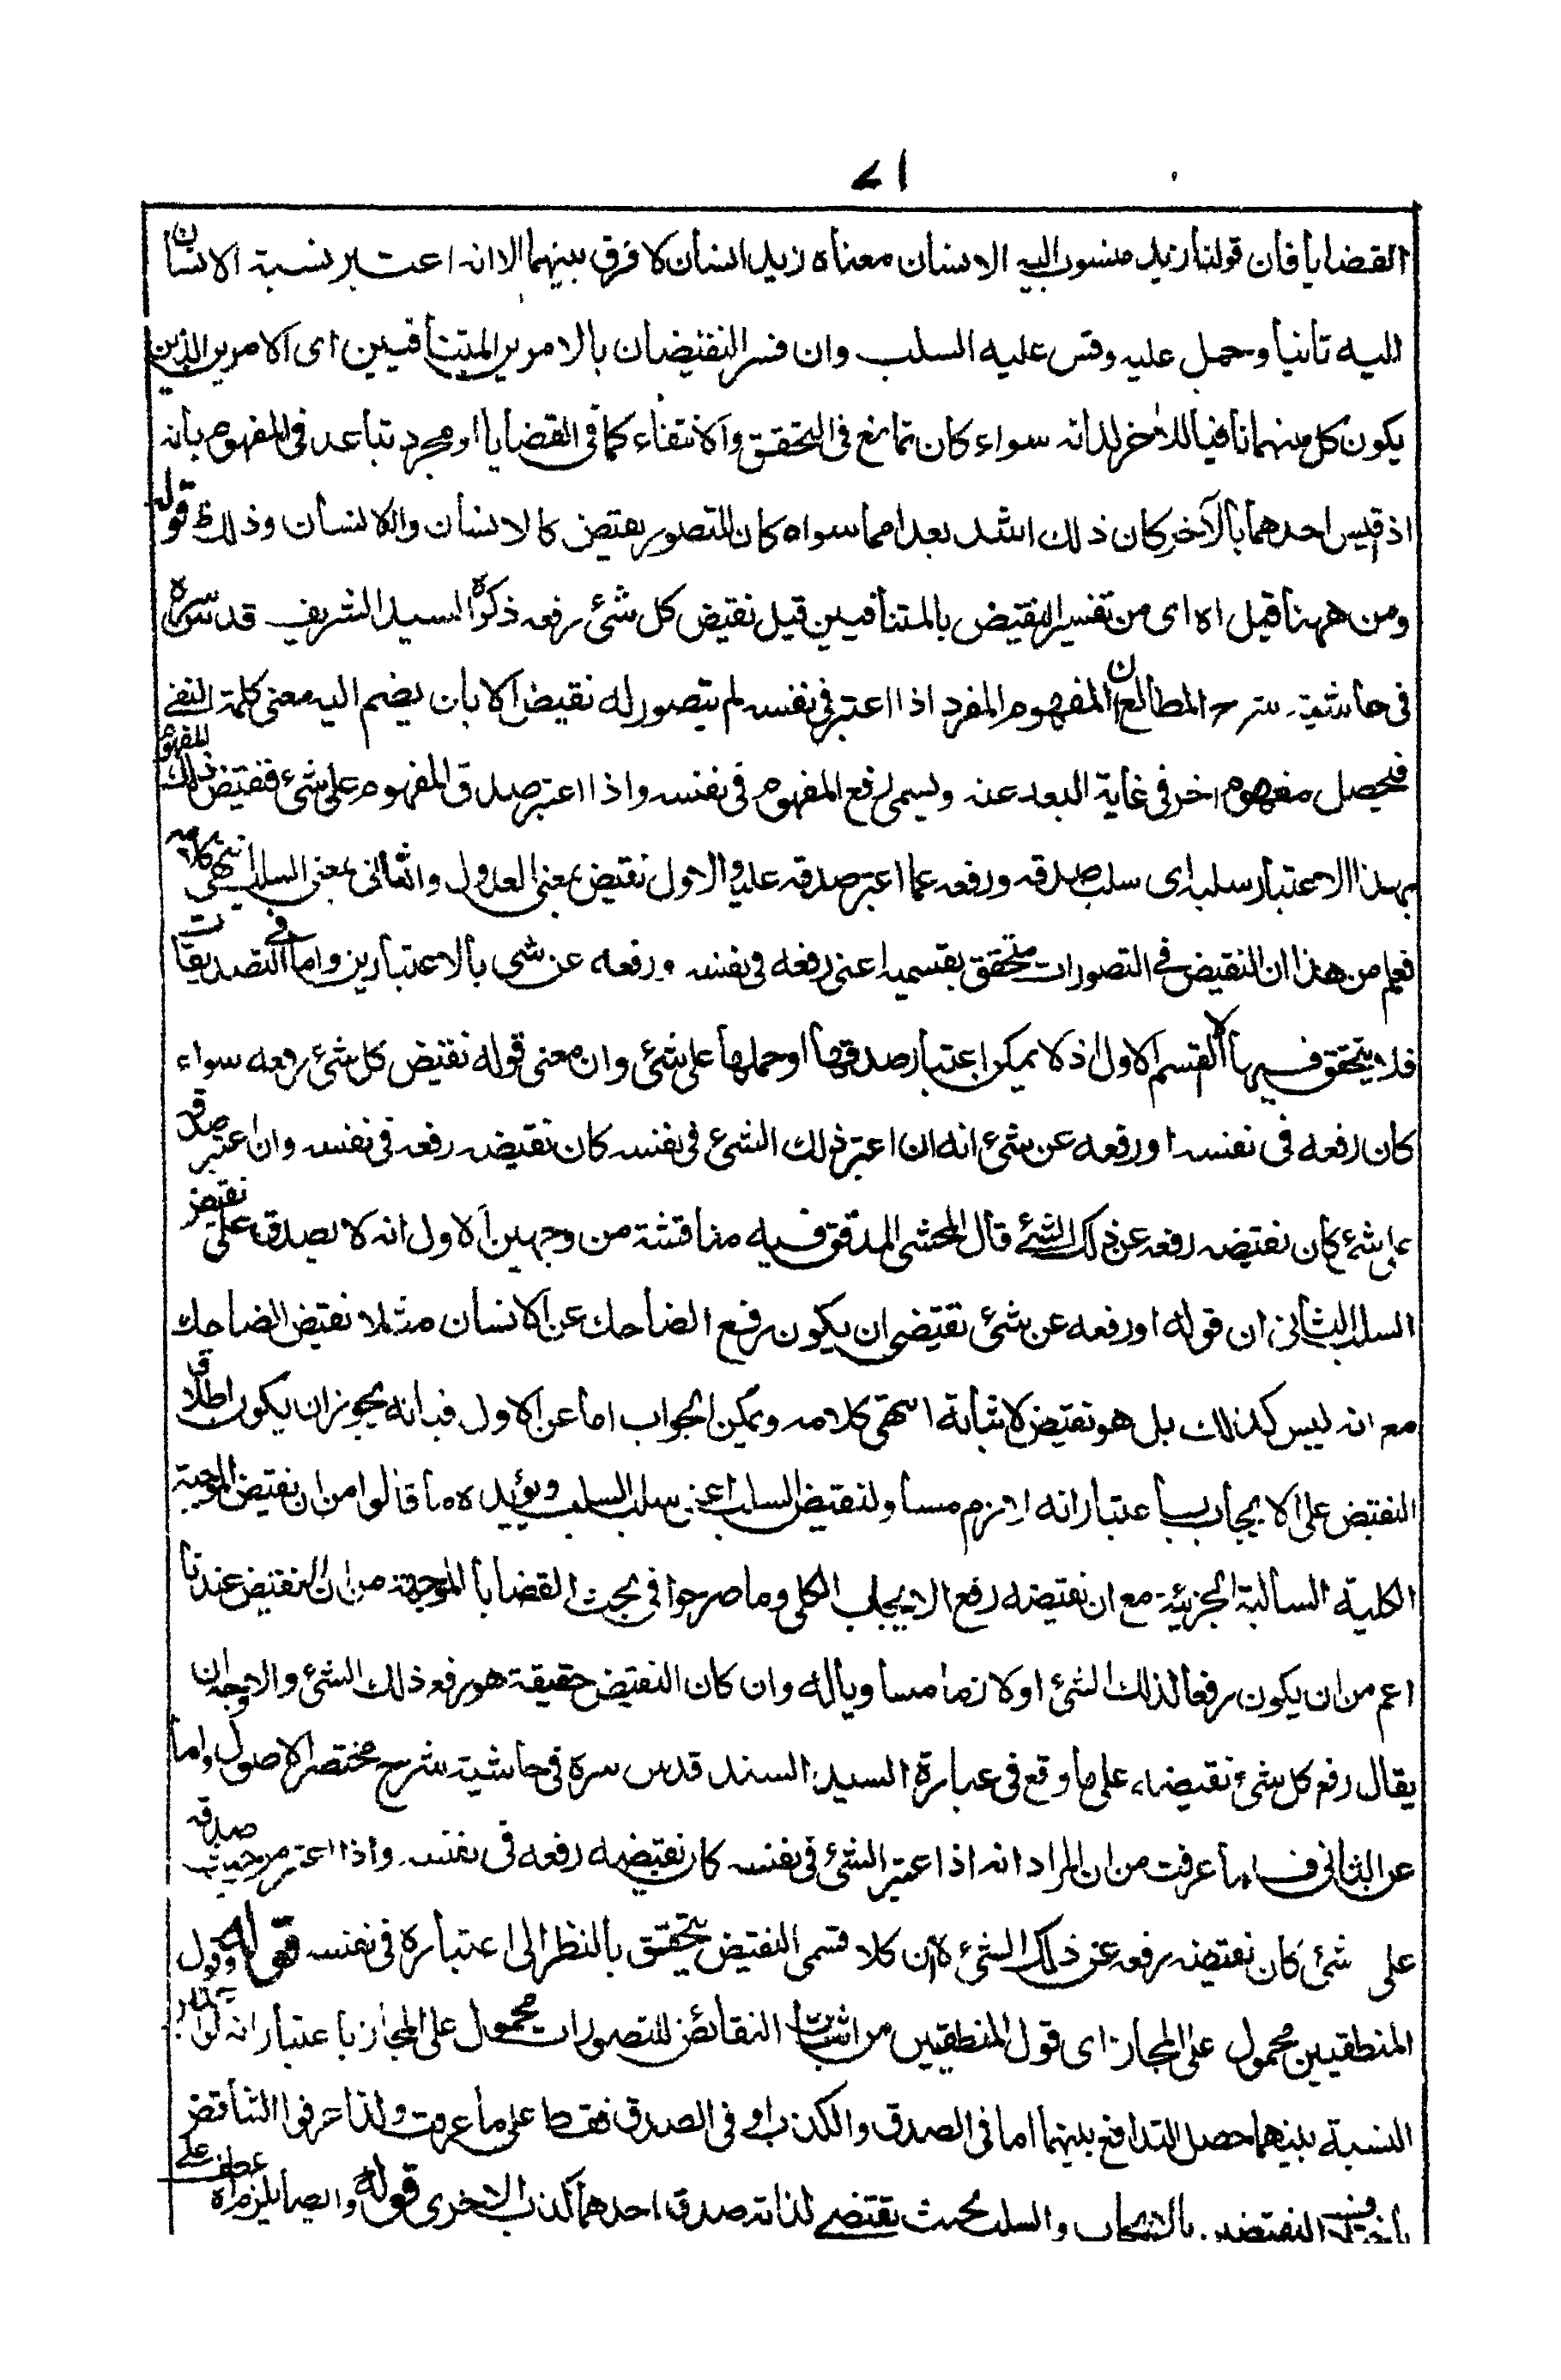 ٧١
القضايا فان قولنا زيد منسوب اليه الانسان معناه زيد انسان لا فرق بينهما الا انه اعتبر نسبة الانسان
اليه ثانيا وحمل عليه وقس عليه السلب وان فسر النقيضان بالامرين المتنافيين اى الامرين الذين
يكون كل منهما نافيا للاخر لذاته سواء كان تمانع فى التحقق والانتفاء كما فى القضايا او مجرد تباعد فى المفهوم بانه
اذ اقيس احدهما بالآخر كان ذلك اشد بعدا مما سواه كان للتصور نقيض كالانسان واللاانسان وذلك ظ قوله
ومن ههنا قيل اه اى من تفسير النقيض بالمتنافيين قيل نقيض كل شئ رفعه ذكره السيد الشريف قدس سره
فى حاشية شرح المطالع ان المفهوم المفرد اذا اعتبر فى نفسه لم يتصور له نقيض الا بان يضم اليه معنى كلمة النفى
فيحصل مفهوم اخر فى غاية البعد عنه ويسمى رفع المفهوم فى نفسه واذا اعتبر صدق المفهوم على شئ فنقيض ذلك المفهوم
بهذا الاعتبار سلبه اى سلب صدقه ورفعه عما اعتبر صدقه عليه والاول نقيض بمعنى العدول والثانى بمعنى السلب انتهى كلامه
فعلم من هذا ان النقيض فى التصورات متحقق بقسميه اعنى رفعه فى نفسه ورفعه عن شى بالاعتبارين واما فى التصديقات
فلا يتحقق فيها الا القسم الاول اذ لا يمكن اعتبار صدقها او حملها على شئ وان معنى قوله نقيض كل شئ رفعه سواء
كان رفعه فى نفسه او رفعه عن شئ انه ان اعتبر ذلك الشئ فى نفسه كان نقيضه رفعه فى نفسه وان اعتبر صدقه
على شئ كان نقيضه رفعه عن ذلك الشئ قال المحشى المدقق فيه مناقشة من وجهين الاول انه لا يصدق على نقيض
السلب الثانى ان قوله او رفعه عن شئ تقتضى ان يكون رفع الضاحك عن الانسان مثلا نقيض الضاحك
مع انه ليس كذلك بل هو نقيض لاثباته انتهى كلامه ويمكن الجواب اما عن الاول فبانه يجوز ان يكون اطلاق
النقيض على الايجاب بسبب اعتبار انه لازم مساو لنقيض السلب اعنى سلب السلب ويؤيده ما قالوا من ان نقيض الموجبة
الكلية السالبة الجزئية مع ان نقيضه رفع الايجاب الكلى وما صرحوا فى بحث القضايا الموجهة من ان النقيض عندنا
اعم من ان يكون رفعا لذلك الشئ او لازما مساويا له وان كان النقيض حقيقة هو رفع ذلك الشئ والاوجه ان
يقال رفع كل شئ نقيضه على ما وقع فى عبارة السيد السند قدس سره فى حاشية شرح مختصر الاصول واما
عن الثانى فبما عرفت من ان المراد انه اذا اعتبر الشئ فى نفسه كان نقيضه رفعه فى نفسه واذا اعتبر من حيث صدقه
على شئ كان نقيضه رفعه عن ذلك الشئ لا ان كلا قسمى النقيض يتحقق بالنظر الى اعتباره فى نفسه قوله وقول
المنطقيين محمول على المجاز اى قول المنطقيين من اثبات النقائض للتصورات محمول على المجاز باعتبار انه لو اعتبر
النسبة بينهما حصل التدافع بينهما اما فى الصدق والكذب او فى الصدق فقط على ما عرفت ولذا عرفوا التناقض
باختلاف القضيتين بالايجاب والسلب بحيث تقتضى لذاته صدق احدهما كذب الاخرى قوله وايضا يلزم اه عطف على